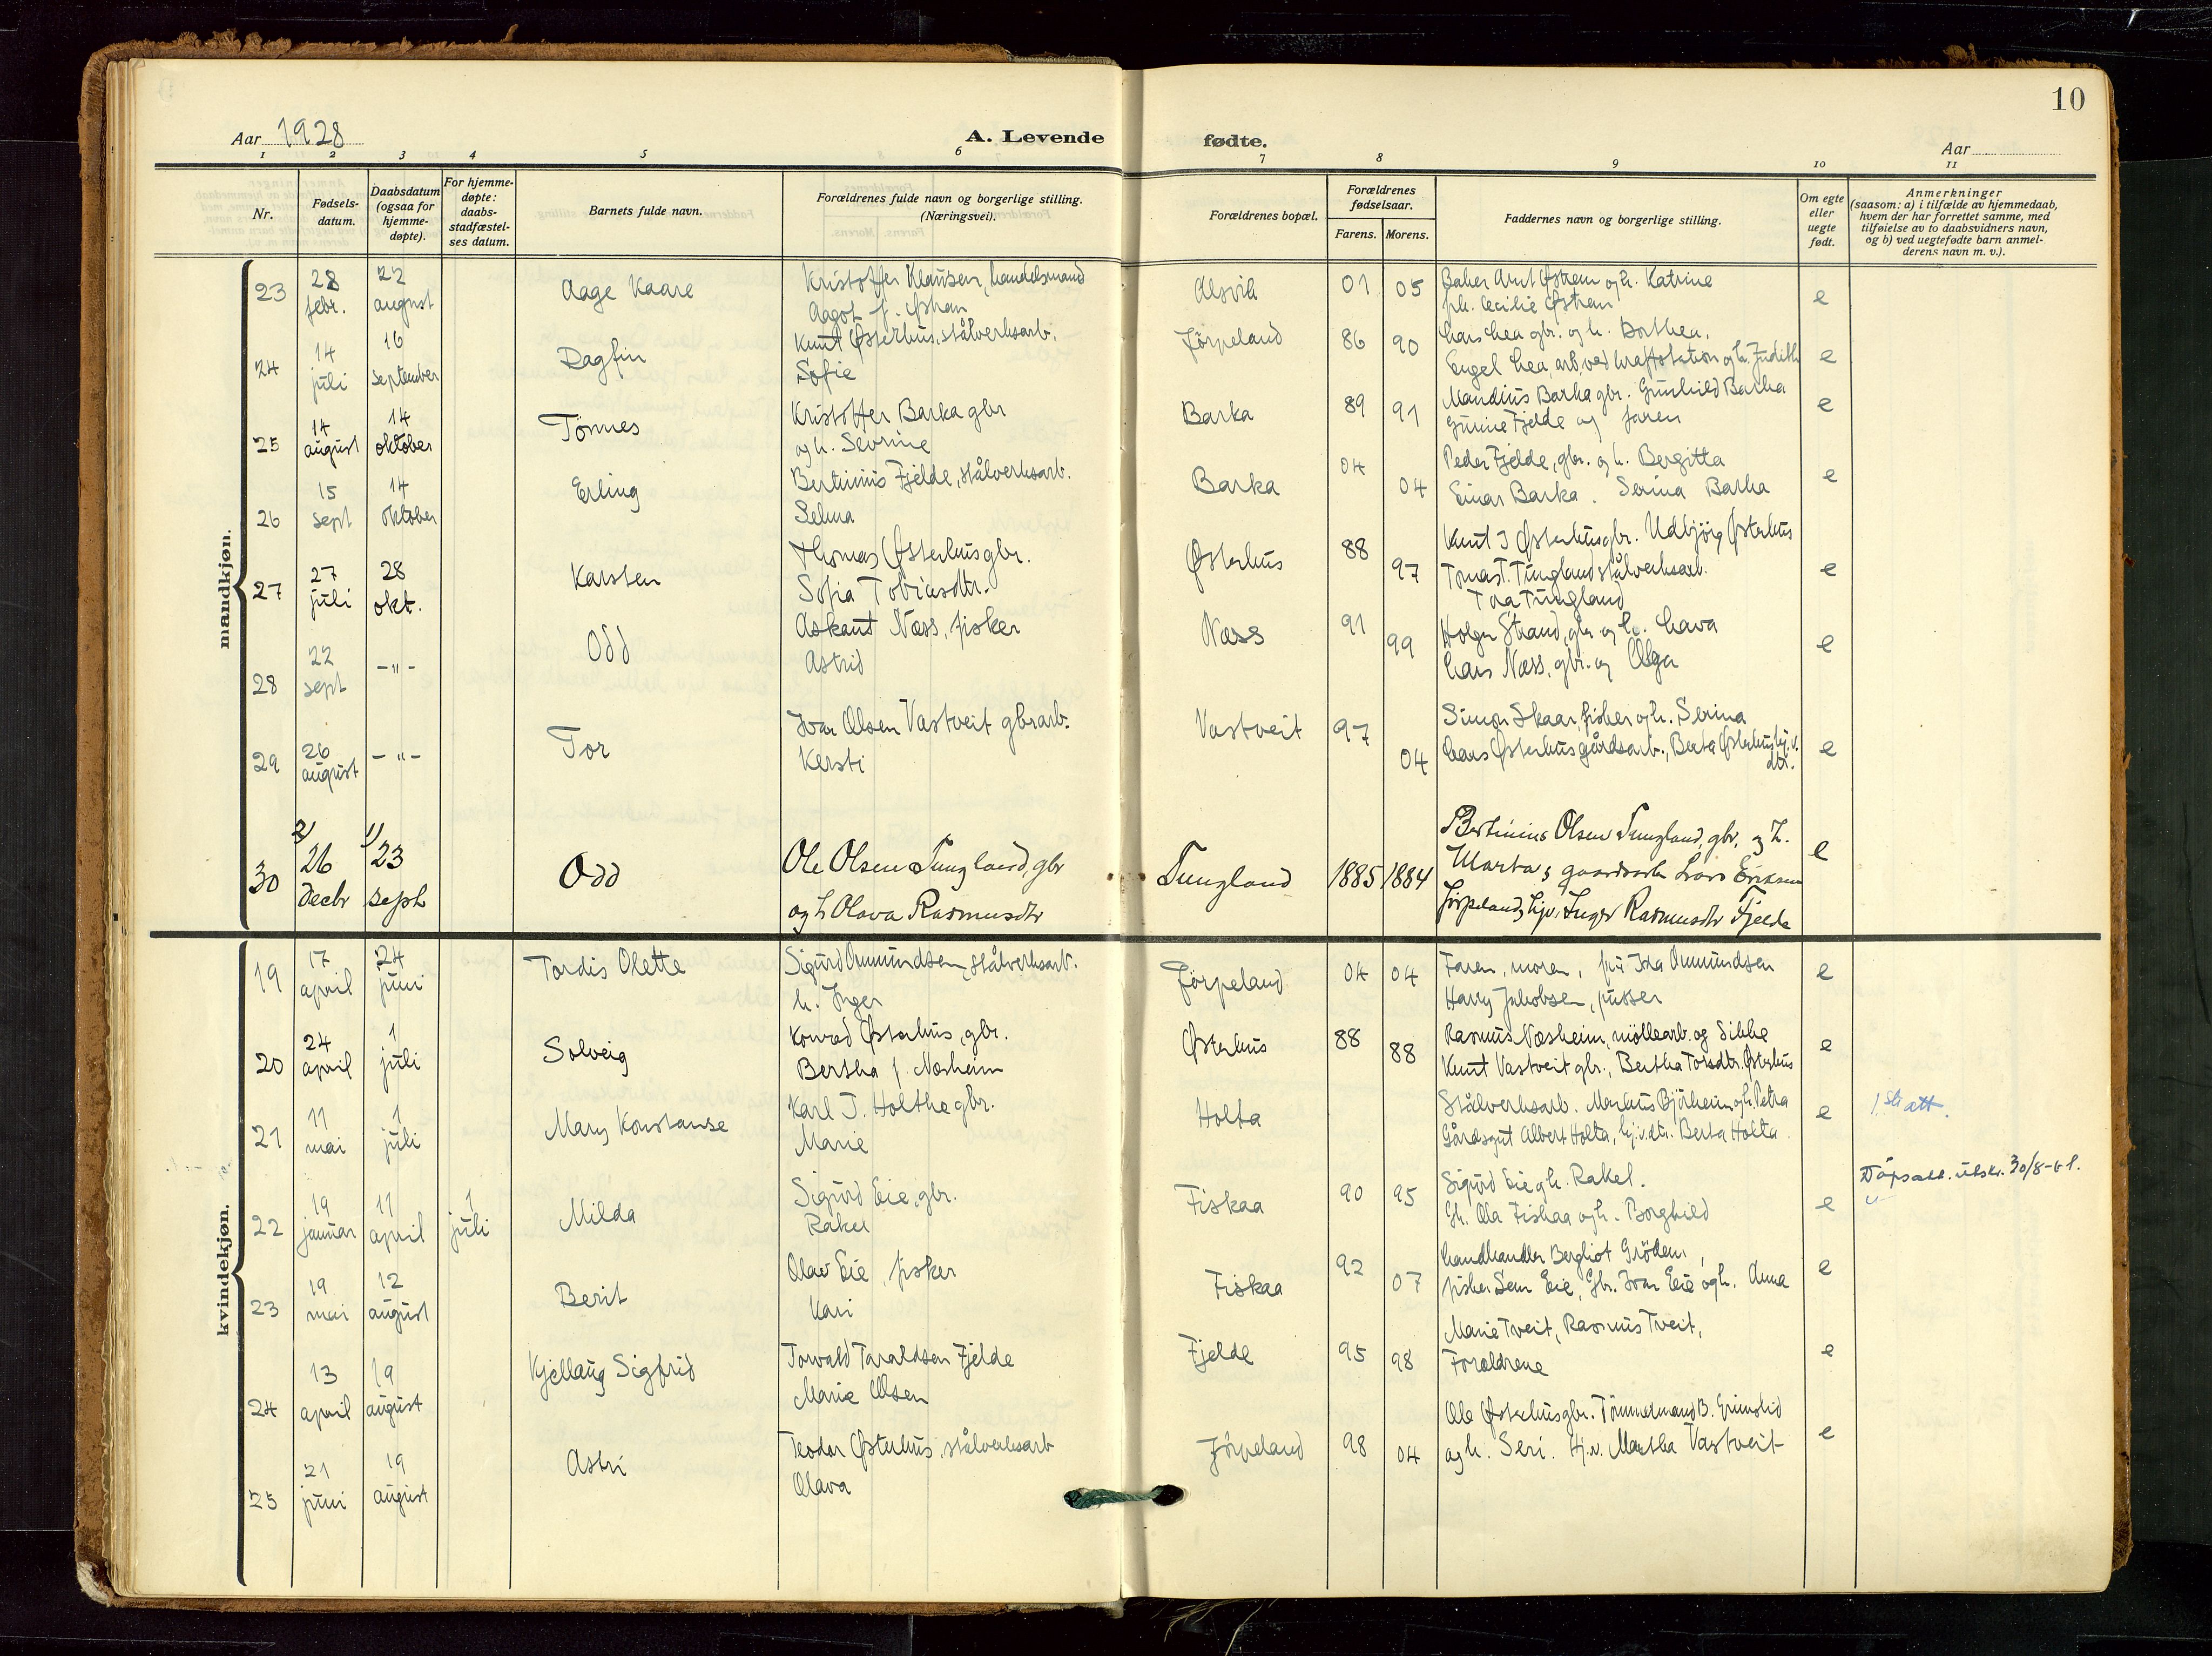 10
Aar 1928
A. Levende fødte.
Aar
1 2 3 4 5 6 7 8 9 10 11
Nr.
Fødsels-
datum.
Daabsdatum
(ogsaa for
hjemme-
døpte).
For hjemme-
døpte:
daabs-
stadfæstel-
ses datum.
Barnets fulde navn.
Forældrenes fulde navn og borgerlige stilling.
(Næringsvei).
Forældrenes bopæl.
Forældrenes
fødselsaar.
Farens. Morens.
Faddernes navn og borgerlige stilling.
Om egte
eller
uegte
født.
Anmerkninger
(saasom: a) i tilfælde av hjemmedaab,
hvem der har forrettet samme, med
tilføielse av to daabsvidners navn,
og b) ved uegtefødte barn anmel-
derens navn m. v.).
mandkjøn.
23
28
febr.
22
august
Aage Kaare
Kristoffer Klausen, handelsmand
Aagot f. Østran
Alsvik
01 05
Baker Arnt Østrem og h. Katrine
frk. Cecilie Østrem
e
24
14
juli
16
september
Dagfin
Knut Østerhus, stålverksarb.
Sofie
Jörpeland
86 90
Lars Lea gbr. og h. Dorthea.
Engel Lea, arb. ved kraftstation og h. Judith
e
25
14
august
14
oktober
Tönnes
Kristoffer Barka gbr
og h. Sevrine
Barka
89 91
Mandius Barka gbr. Gunhild Barka
Gurine Fjelde og faren
e
26
15
sept
14
oktober
Erling
Bertinius Fjelde, stålverksarb.
Selma
Barka
04 04
Peder Fjelde, gbr. og h. Bergitta
Einar Barka. Serina Barka
e
27
27
juli
28
okt.
Karsten
Thomas Østerhus gbr.
Sofia Tobiasdtr.
Østerhus
88 97
Knut J Østerhus gbr. Udbjörg Østerhus
Tomas T. Tungland stålverksarb.
Tora Tungland
e
28
22
sept
-"-
Odd
Askaut Næss, fisker
Astrid
Næss
91 99
Holger Strand, gbr og h. Lava
Lars Næss, gbr. og Olga
e
29
26
august
-"-
Tor
Ivar Olsen Vastveit gbrarb.
Kersti
Vastveit
97 04
Simon Skaar, fisker og h. Serina
Lars Østerhus gårdsarb., Berta Østerhus hj.v.
dtr.
e
30
2/
26
decbr
1/
23
sept
Odd
Ole Olsen Tungland, gbr
og h Olava Rasmusdtr
Tungland
1885 1884
Bertinius Olsen Tungland, gbr, og h.
Marta; gaardsarb Lars Eriksen
Jörpeland; hjv. Inger Rasmusdtr Fjelde
e
kvindekjøn.
19
17
april
24
juni
Tordis Olette
Sigurd Ommundsen, stålverksarb.
h. Inger
Jörpeland
04 04
Faren, moren, fru Ida Ommundsen
Harry Jakobsen, pusser
e
20
24
april
1
juli
Solveig
Konrad Østerhus, gbr.
Bertha f. Næsheim
Østerhus
88 88
Rasmus Næsheim, möllearb. og Sikke
Knut Vastveit gbr., Bertha Torsdtr. Østerhus
e
21
11
mai
1
juli
Mary Konstanse
Karl J. Holthe gbr.
Marie
Holta
Stålverksarb. Markus Bjørheim og h. Petra
Gårdsgut Albert Holta, hj.v.dtr. Berta Holta.
e
1. att.
22
19
januar
11
april
1
juli
Milda
Sigurd Eie, gbr.
Rakel
Fiskaa
90 95
Sigurd Eie og h. Rakel.
Gb. Ola Fiskaa og h. Borghild
e
Döpsatt. utskr. 30/8-61.
23
19
mai
12
august
Berit
Olav Eie, fisker
Kari
Fiskaa
92 07
Landhandler Bergliot Grödem,
fisker Sem Eie, Gbr. Ivar Eie og h. Anna
e
24
13
april
19
august
Kjellaug Sigfrid
Torvald Taraldsen Fjelde
Marie Olsen
Fjelde
95 98
Marie Tveit, Rasmus Tveit,
Forældrene
e
25
21
juni
19
august
Astri
Teodor Østerhus, stålverksarb
Olava
Jörpeland
98 04
Ole Østerhus gbr. Tömmermand B. Grimslid
og h. Seri. Hj.v. Martha Vastveit
e